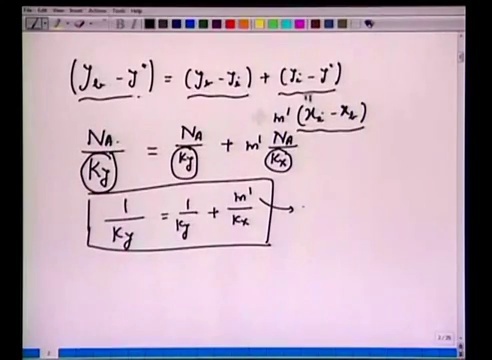 File Edit View Insert Actions Tools Help
(y_b - y*) = (y_b - y_i) + (y_i - y*)
m' (x_i - x_b)
N_A / K_y = N_A / k_y + m' N_A / k_x
1 / K_y = 1 / k_y + m' / k_x